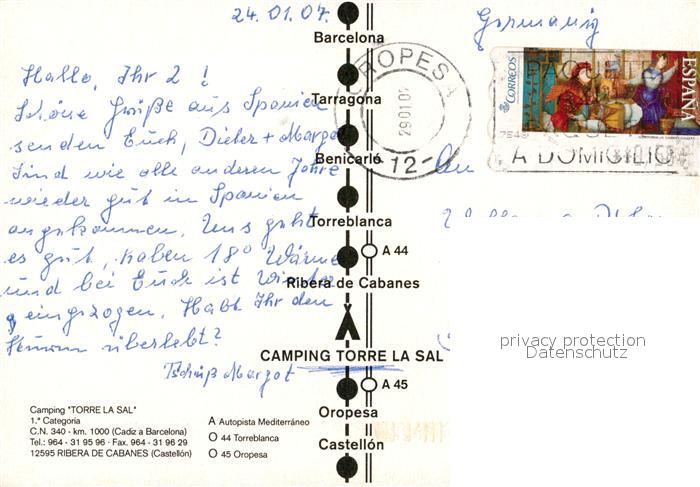 24.01.07.
Germany
Hallo, Ihr 2 !
Schöne Grüße aus Spanien
senden Euch, Dieter + Margot
Sind wie alle anderen Jahre
wieder gut in Spanien
angekommen. Uns geht
es gut, haben 18° Wärme
und bei Euch ist Winter
eingezogen. Habt Ihr den
überlebt?
Tschüß Margot
Barcelona
Tarragona
Benicarló
Torreblanca
A 44
Ribera de Cabanes
CAMPING TORRE LA SAL
A 45
Oropesa
Castellón
OROPESA
290107
12
CORREOS
ESPAÑA
A DOMICILIO
An
privacy protection
Datenschutz
Camping "TORRE LA SAL"
1.ª Categoria
C.N. 340 - km. 1000 (Cadiz a Barcelona)
Tel.: 964 - 31 95 96 · Fax. 964 - 31 96 29
12595 RIBERA DE CABANES (Castellón)
A Autopista Mediterráneo
O 44 Torreblanca
O 45 Oropesa